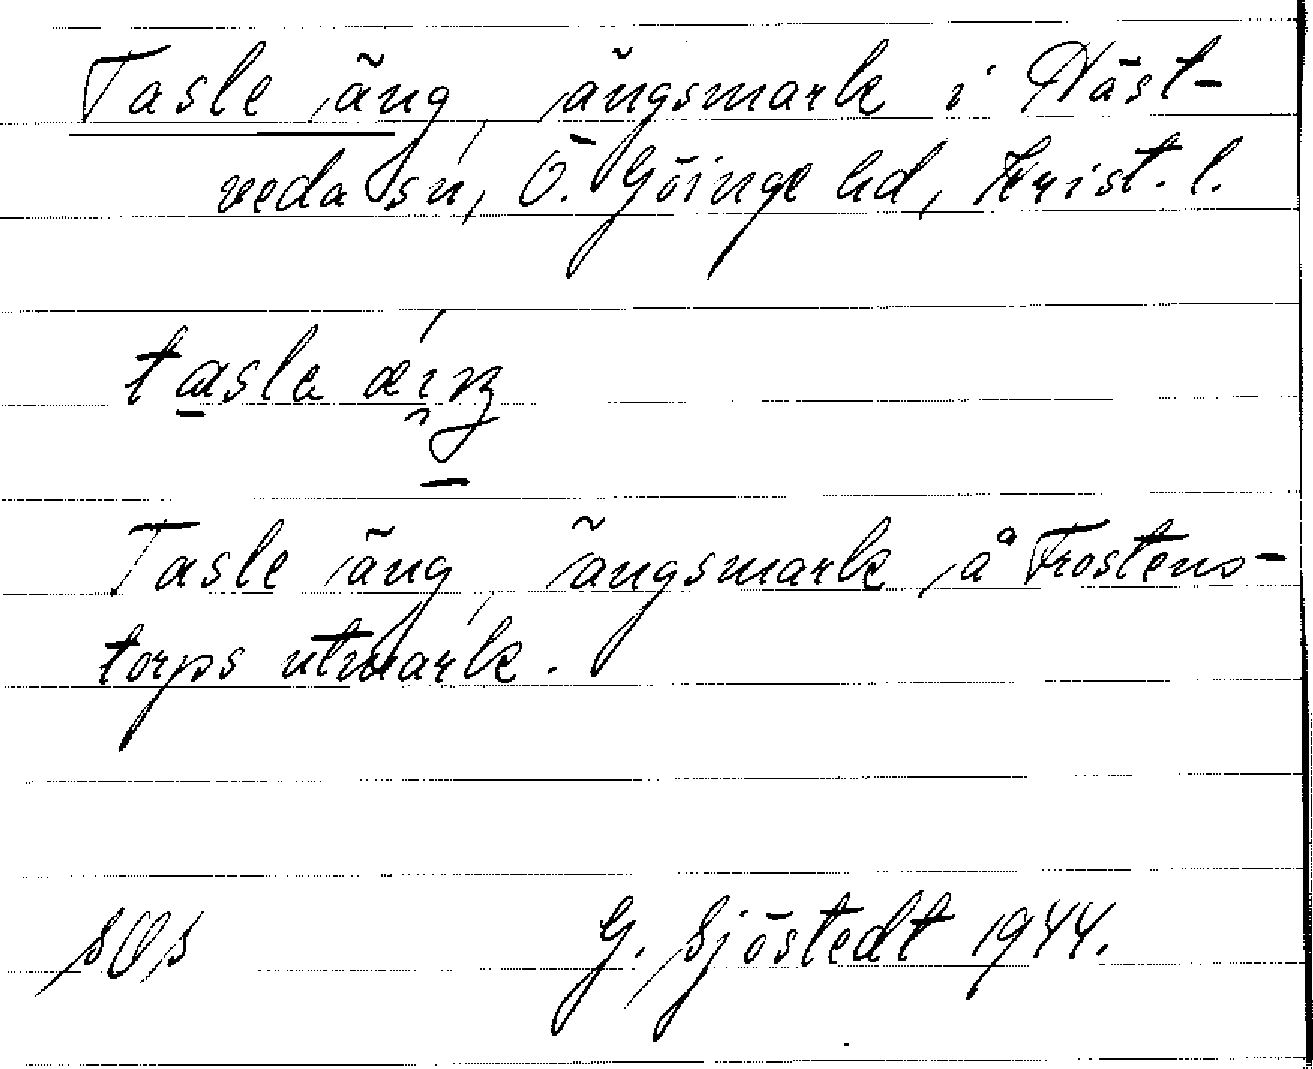 Tasle äng, ängsmark i Näst-
veda sn, Ö. Göinge hd, Krist. l.
Tasle äng, ängsmark å Frostens-
torps utmark.
G. Sjöstedt 1944.